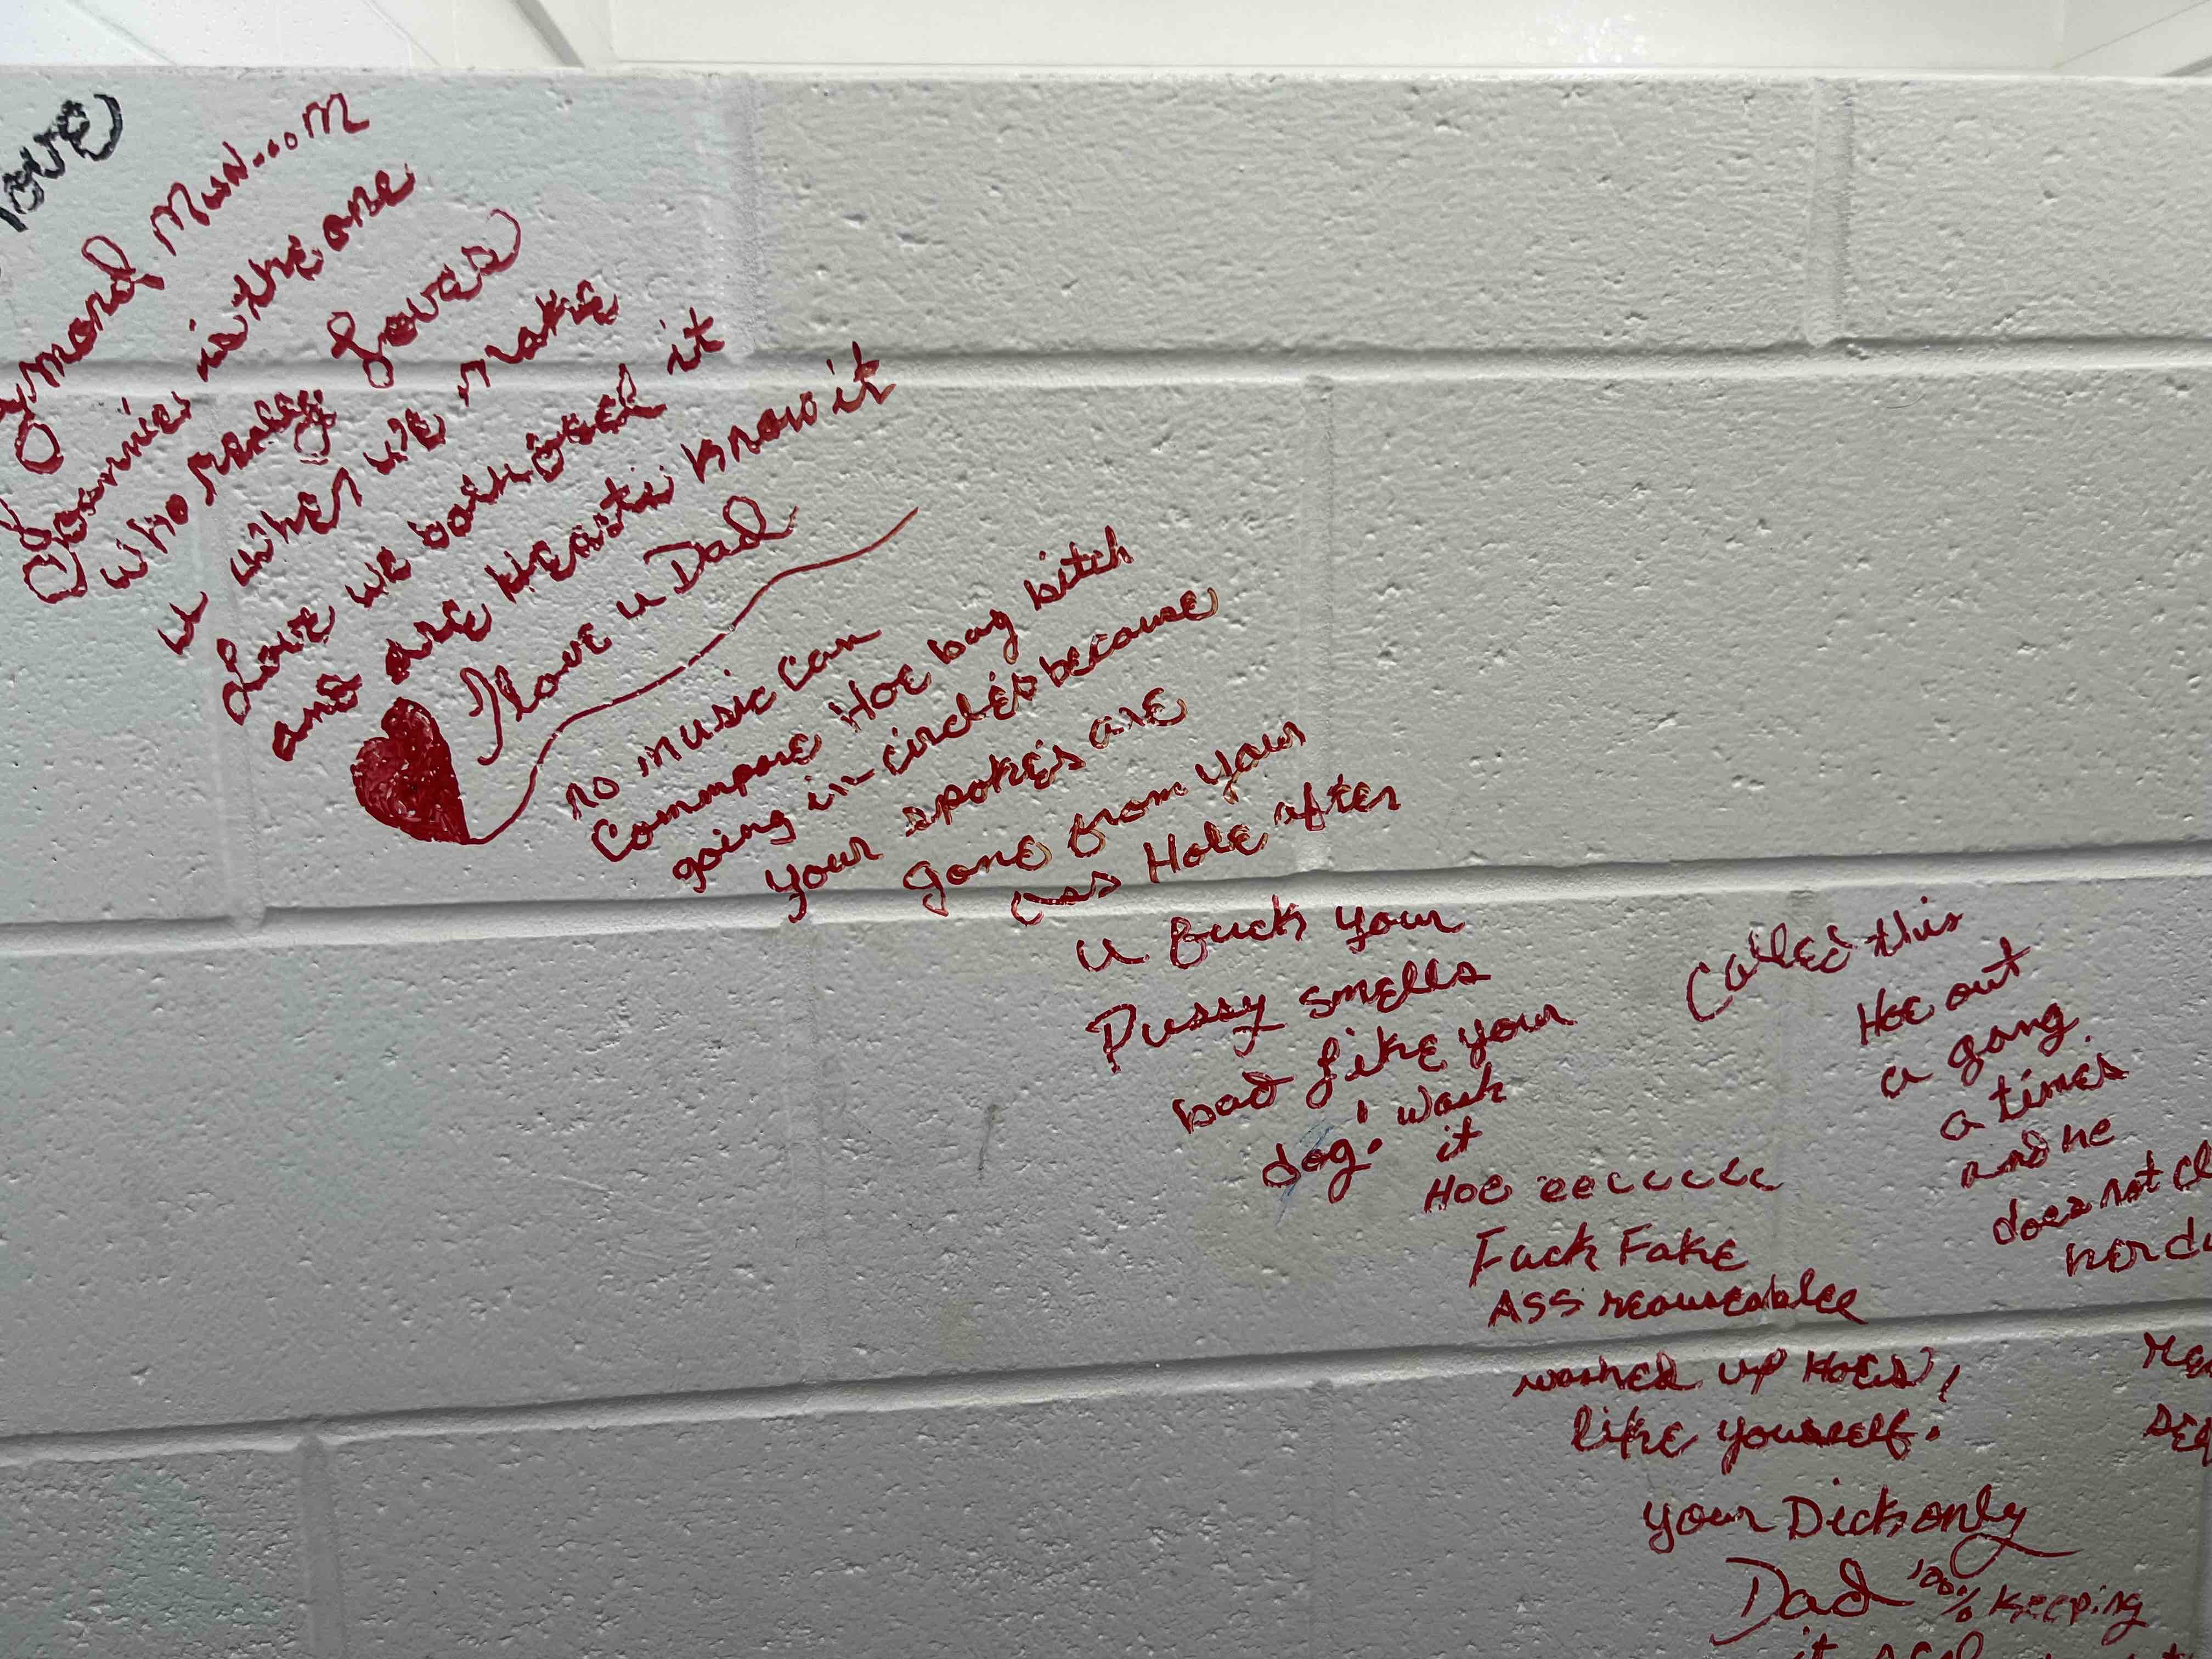 love
mond Mun...m
is the one
who really loves
u when we make
Love we both feel it
and are Hearts know it
I love u Dad
no music can
Commpare Hoe bag bitch
going in circles because
your spokes are
gone from your
ass Hole after
u fuck your
Pussy smells
bad like your
dog! wash
it
Hoe eeccccc
Fuck Fake
ASS reauseablee
washed up Hoes,
like yourself.
your Dick only
Dad 100% keeping
it
Called this
Hoe out
a gang
a times
and he
does not
nor